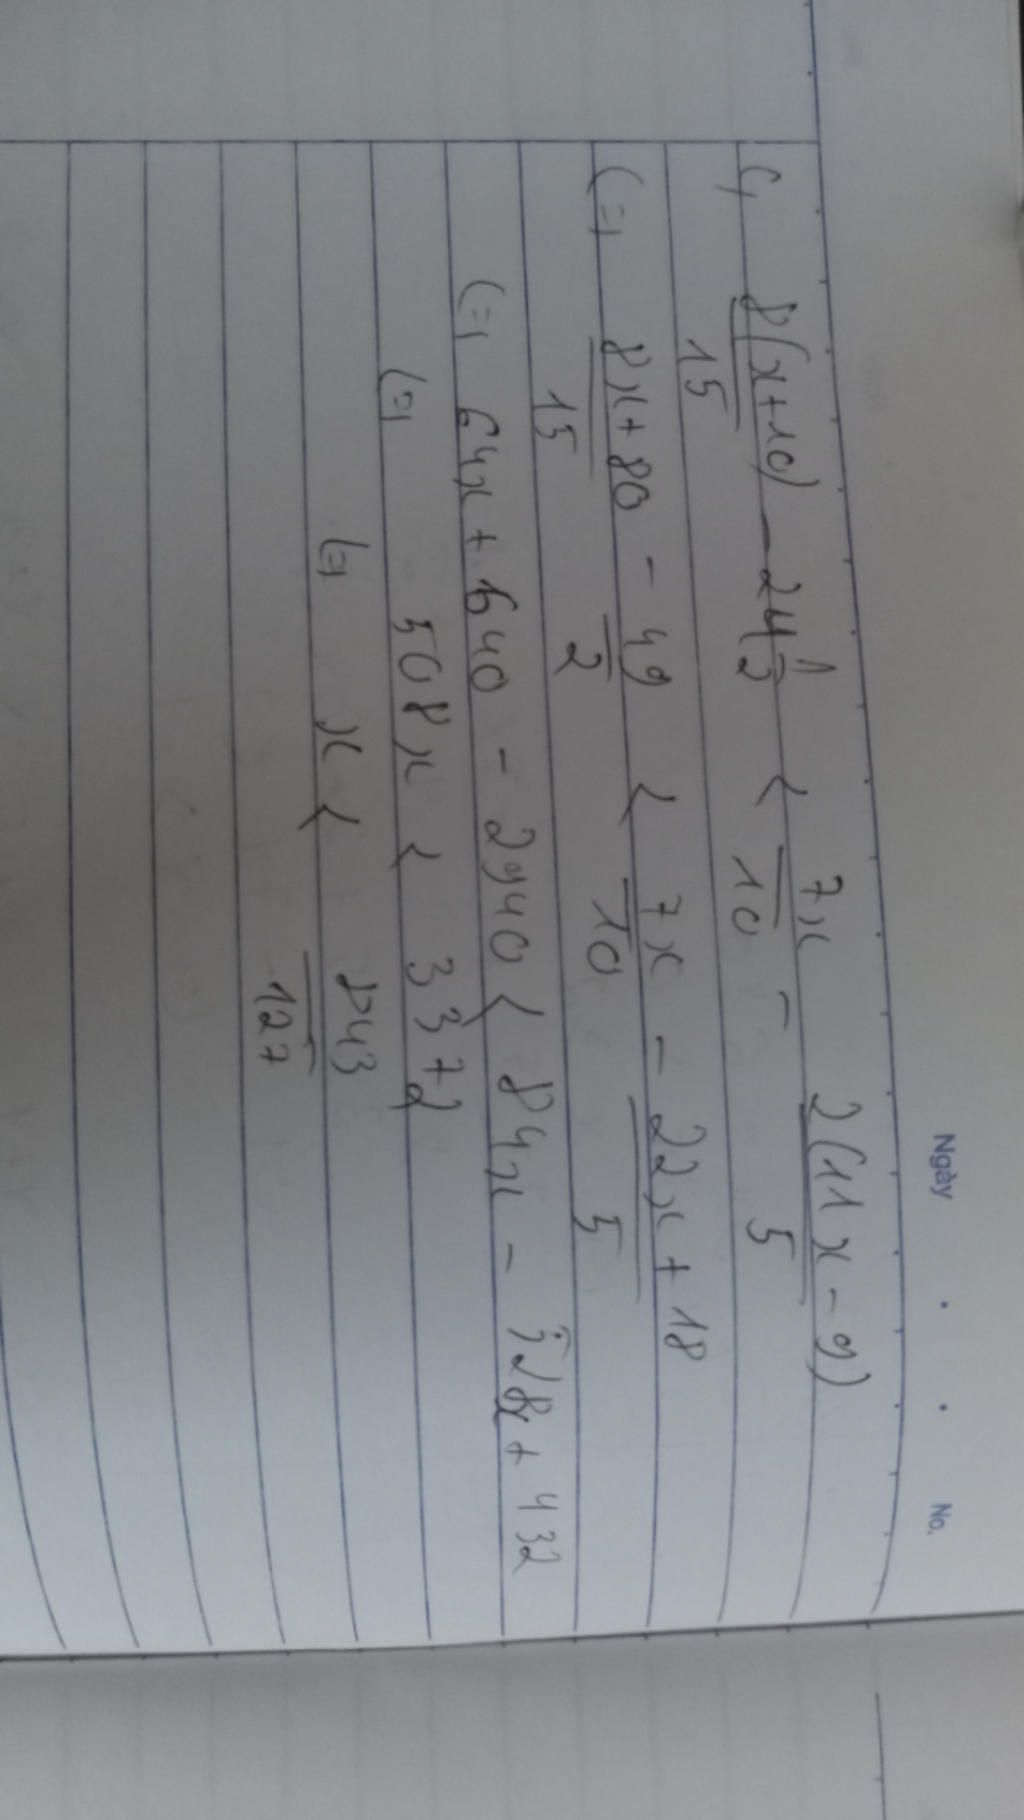 Ngày . . No.
c, 8(x+10)/15 - 24 1/2 < 7x/10 - 2(11x-9)/5
(=) 8x+80/15 - 49/2 < 7x/10 - 22x+18/5
(=) 64x + 640 - 2940 < 84x - 528x + 432
(=) 508x < 3372
(=) x < 843/127